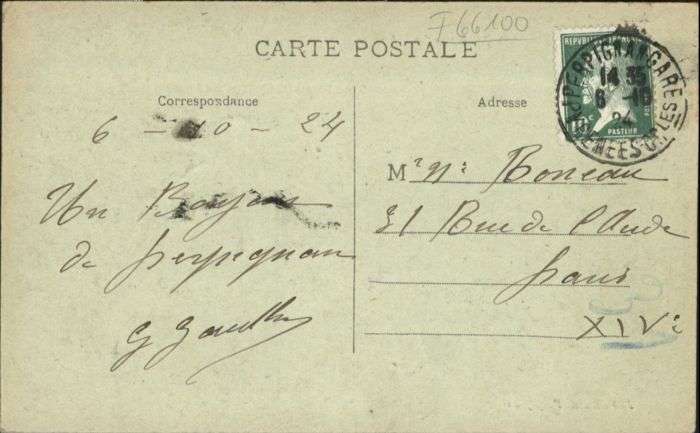 F 66100
CARTE POSTALE
Correspondance
Adresse
REPUBLIQUE FRANÇAISE
15c
PASTEUR
PERPIGNAN GARE
14 35
6 - 10
24
PYRENEES-ORLES
6 - 10 - 24
Un Bonjour
de Perpignan
Mr Me Boneau
31 Rue de l'Aude
Paris
XIVe